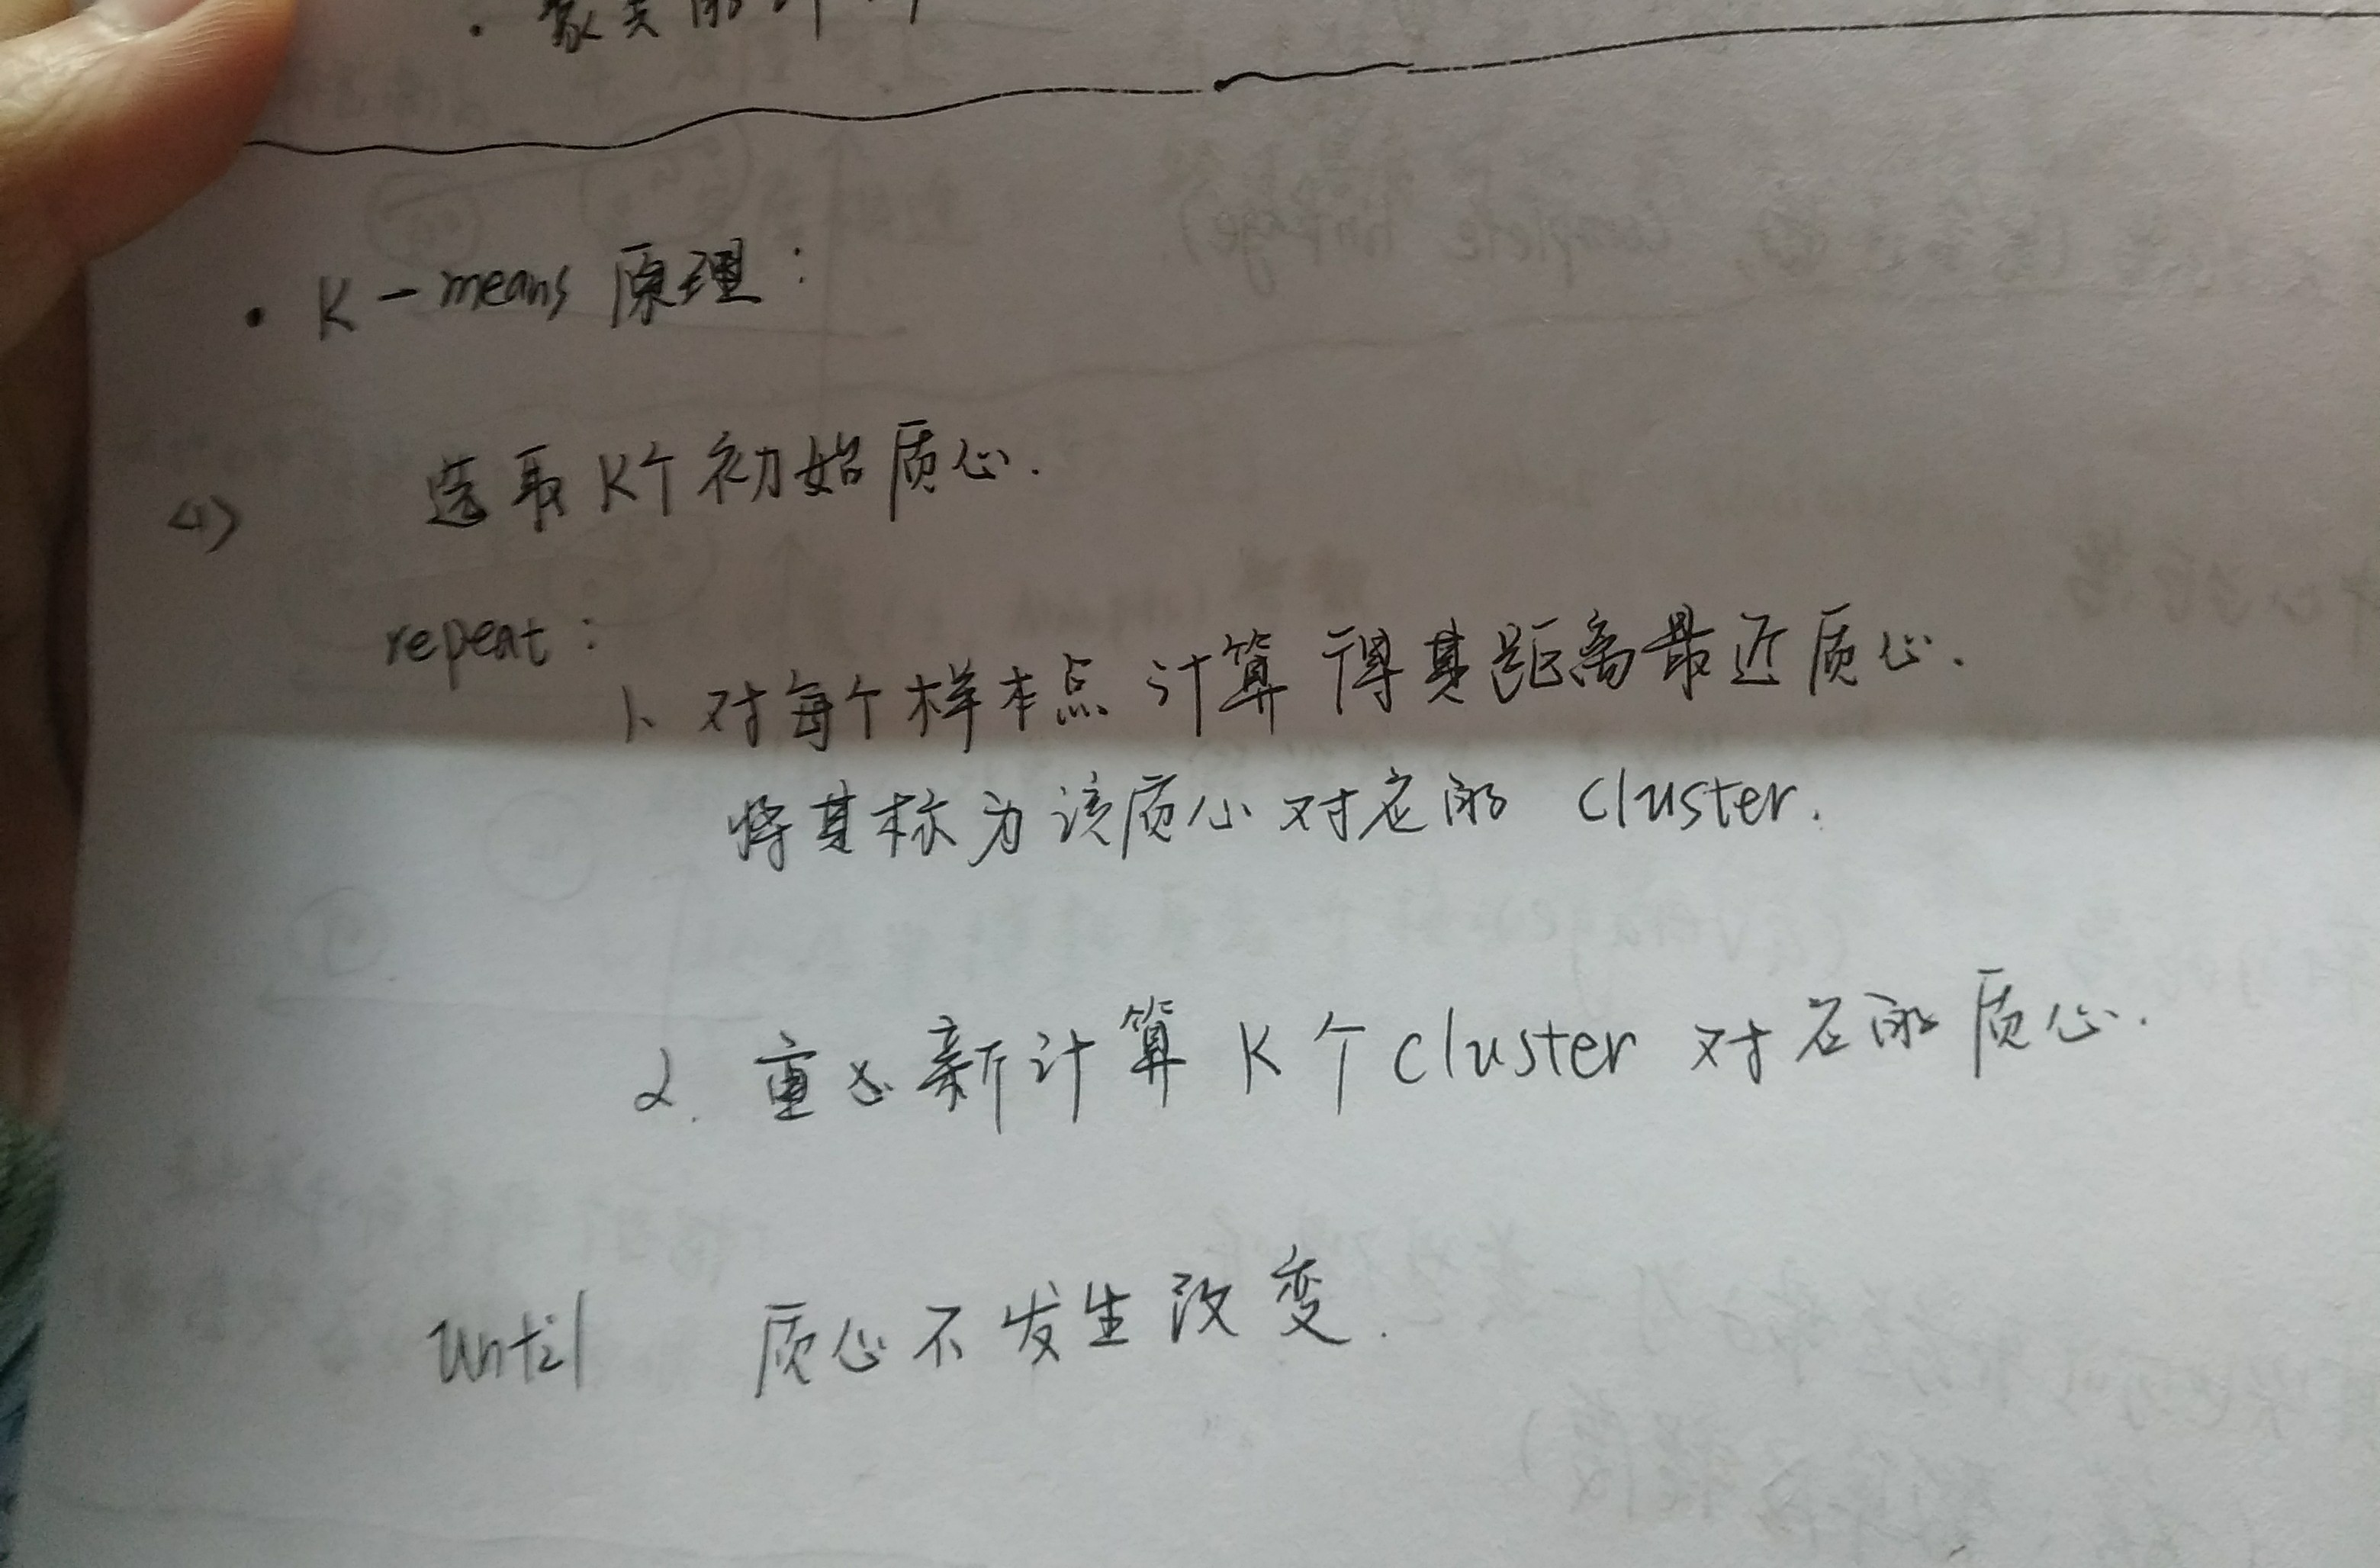 • K-means 原理:
<1> 选取 K个初始质心.
repeat:
1、对每个样本点 计算得其距离最近质心.
将其标为该质心对应的 cluster.
2. 重新计算 K个cluster 对应的质心.
until 质心不发生改变.